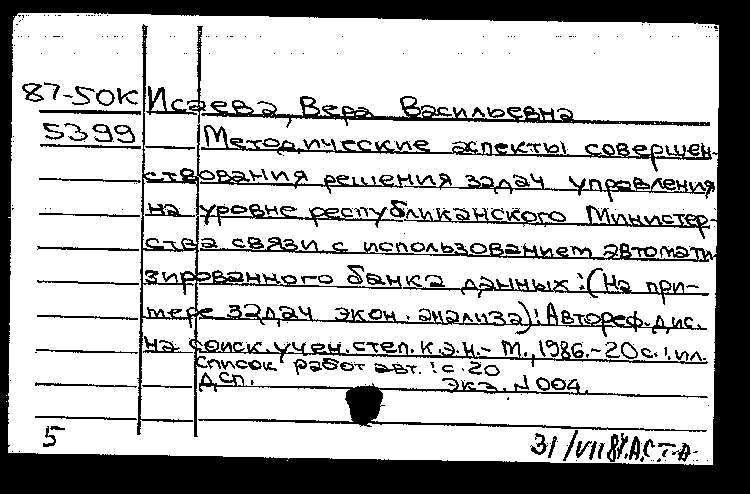 87-50К Исаева, Вера Васильевна
5399 Методические аспекты совершен-
ствования решения задач управления
на уровне республиканского Министер-
ства связи с использованием автомати
зированного банка данных :(На при-
мере задач экон. анализа): Автореф. дис.
на соиск. учен. степ. к.э.н.- М., 1986.-20с.: ил.
Список работ авт. : с. 20
ДСП. Экз. N 004.
5 31/VII 87.